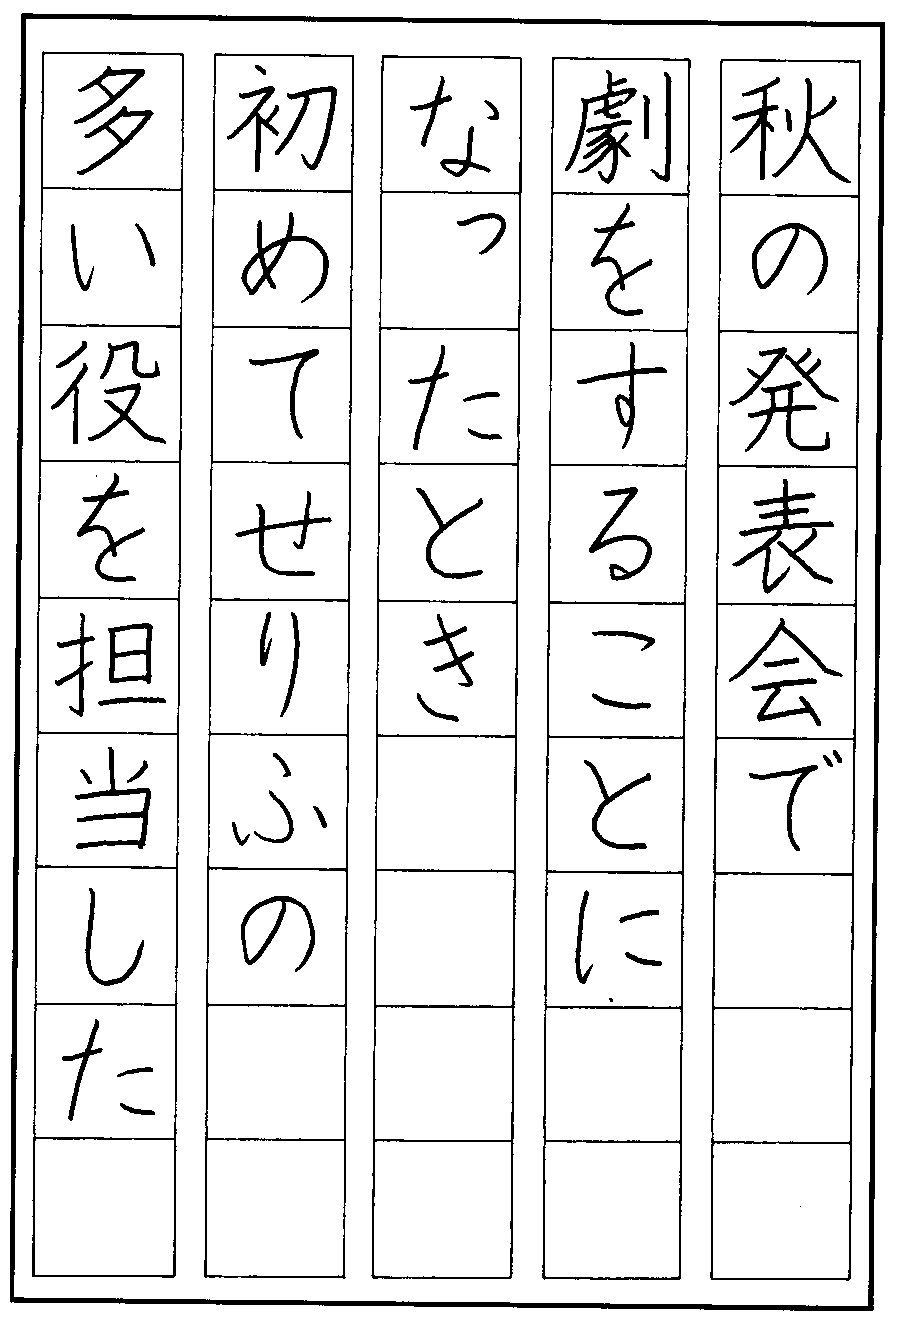 秋の発表会で
劇をすることに
なったとき
初めてせりふの
多い役を担当した